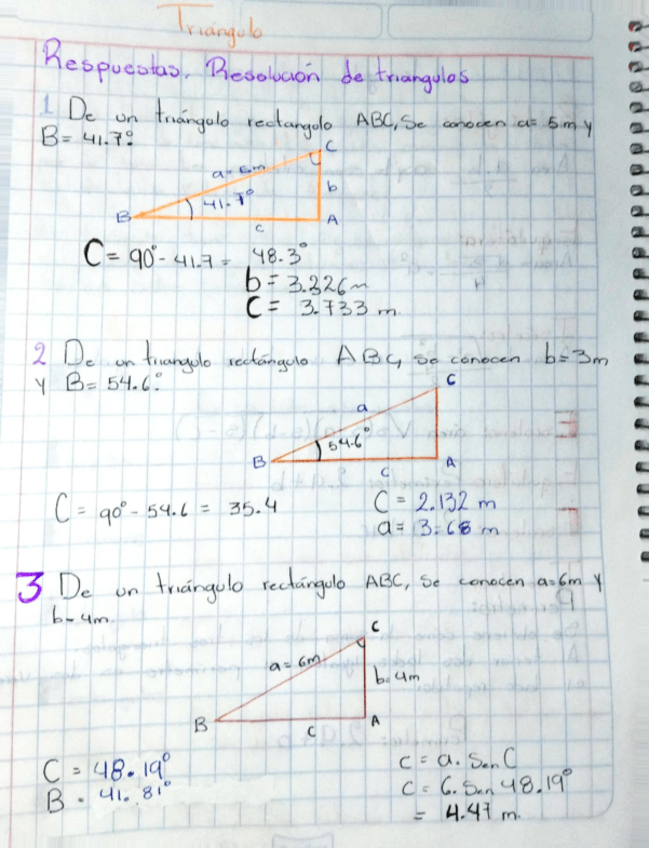 Triángulo
Respuestas. Resolución de triangulos
1 De un triángulo rectangulo ABC, Se conocen a= 5m y
B= 41.7°.
C
a= 6m
b
41.7°
B
c
A
C= 90° - 41.7 = 48.3°
b= 3.326m
C= 3.733 m.
2 De un triangulo rectángulo ABC, se conocen b=3m
y B= 54.6°.
C
a
54.6°
B
A
c
C= 90° - 54.6 = 35.4
C= 2.132 m
a= 3.68 m
3 De un triángulo rectángulo ABC, Se conocen a=6m y
b=4m
C
a=6m
b=4m
B
A
c
C = 48.19°
B = 41.81°
c= a. Sen C
C= 6. Sen 48.19°
= 4.47 m.